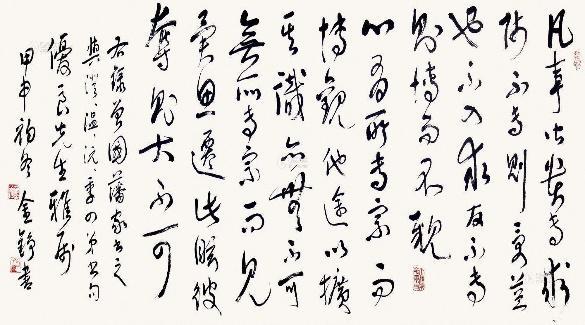 凡事皆貴專求
師不專則受益
也不入求友不專
則博而不親
心有所專宗而
博觀他途以擴
其識亦無不可
無所專宗而見
異思遷此眩彼
奪則大不可
右錄曾國藩家書之
與澄溫沅季四弟書句
優良先生雅屬
甲申初冬 金錚書